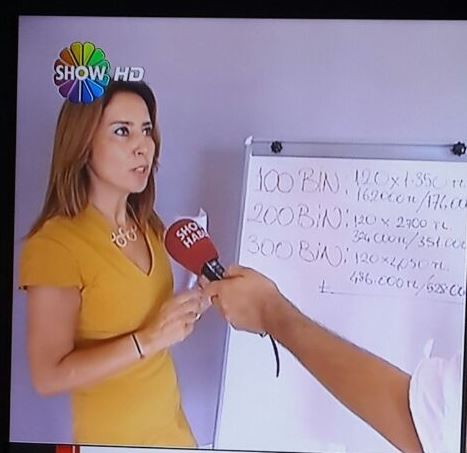 SHOW HD
SHOW
HABE
100 BİN: 120 x 1.350 TL
162.000 TL/174.
200 BİN: 120 x 2700 TL
324.000 TL/351.00
300 BİN: 120 x 4,050 TL
486.000 TL/